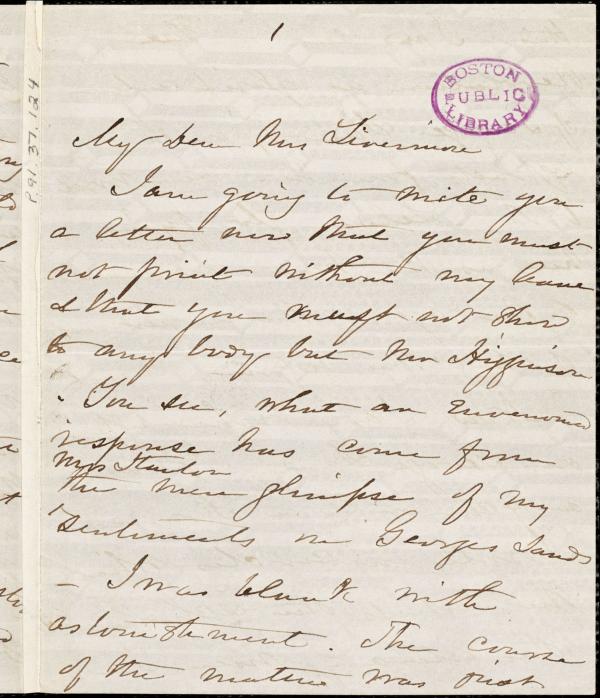 1
BOSTON
PUBLIC
LIBRARY
P.91.37.124
My dear Mrs Livermore
I am going to write you
a letter now that you must
not print without my leave
& that you must not show
to any body but Mr Higginson
. You see, what an envenomed
response has come from
Mrs Stanton
the mere glimpse of my
sentiments on Georges Sands
– I was blank with
astonishment. The course
of the matter was just